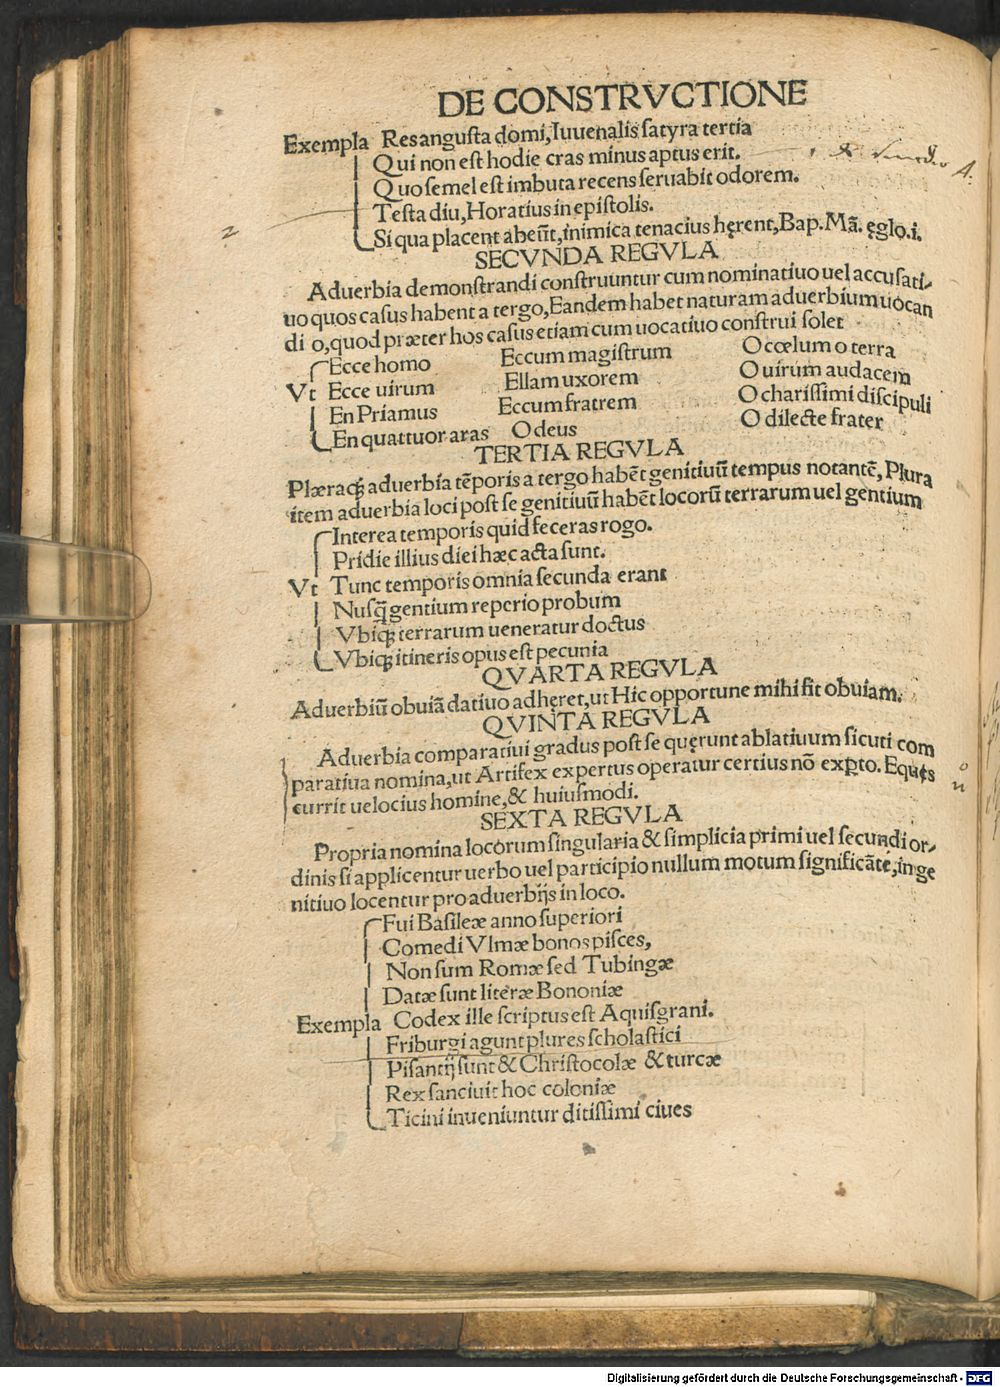 DE CONSTRVCTIONE
Exempla Res angusta domi, Iuuenalis satyra tertia
Qui non est hodie cras minus aptus erit.
Quo semel est imbuta recens seruabit odorem.
Testa diu, Horatius in epistolis.
Si qua placent abeūt, inimica tenacius hęrent, Bap. Mā. ęglo. i.
2
SECVNDA REGVLA
Aduerbia demonstrandi construuntur cum nominatiuo uel accusati-
uo quos casus habent a tergo, Eandem habet naturam aduerbium uocan
di o, quod præter hos casus etiam cum uocatiuo construi solet
Ecce homo Eccum magistrum O cœlum o terra
Vt Ecce uirum Ellam uxorem O uirum audacem
En Priamus Eccum fratrem O charissimi discipuli
En quattuor aras O deus O dilecte frater
TERTIA REGVLA
Plæraqꝫ aduerbia tēporis a tergo habēt genitiuū tempus notantē, Plura
item aduerbia loci post se genitiuū habēt locorū terrarum uel gentium
Interea temporis quid feceras rogo.
Pridie illius diei hæc acta sunt.
Vt Tunc temporis omnia secunda erant
Nusq̄ gentium reperio probum
Vbiqꝫ terrarum ueneratur doctus
Vbiqꝫ itineris opus est pecunia
QVARTA REGVLA
Aduerbiū obuiā datiuo adhęret, ut Hic opportune mihi fit obuiam.
QVINTA REGVLA
Aduerbia comparatiui gradus post se quęrunt ablatiuum sicuti com
paratiua nomina, ut Artifex expertus operatur certius nō exꝑto. Equęs
currit uelocius homine, & huiusmodi.
SEXTA REGVLA
Propria nomina locorum singularia & simplicia primi uel secundi or-
dinis si applicentur uerbo uel participio nullum motum significāte, in ge
nitiuo locentur pro aduerbijs in loco.
Fui Basileæ anno superiori
Comedi Vlmæ bonos pisces,
Non sum Romæ sed Tubingæ
Datæ sunt literæ Bononiæ
Exempla Codex ille scriptus est Aquisgrani.
Friburgi agunt plures scholastici
Pisantij sunt & Christocolæ & turcæ
Rex sanciuit hoc coloniæ
Ticini inueniuntur ditissimi ciues
Digitalisierung gefördert durch die Deutsche Forschungsgemeinschaft - DFG